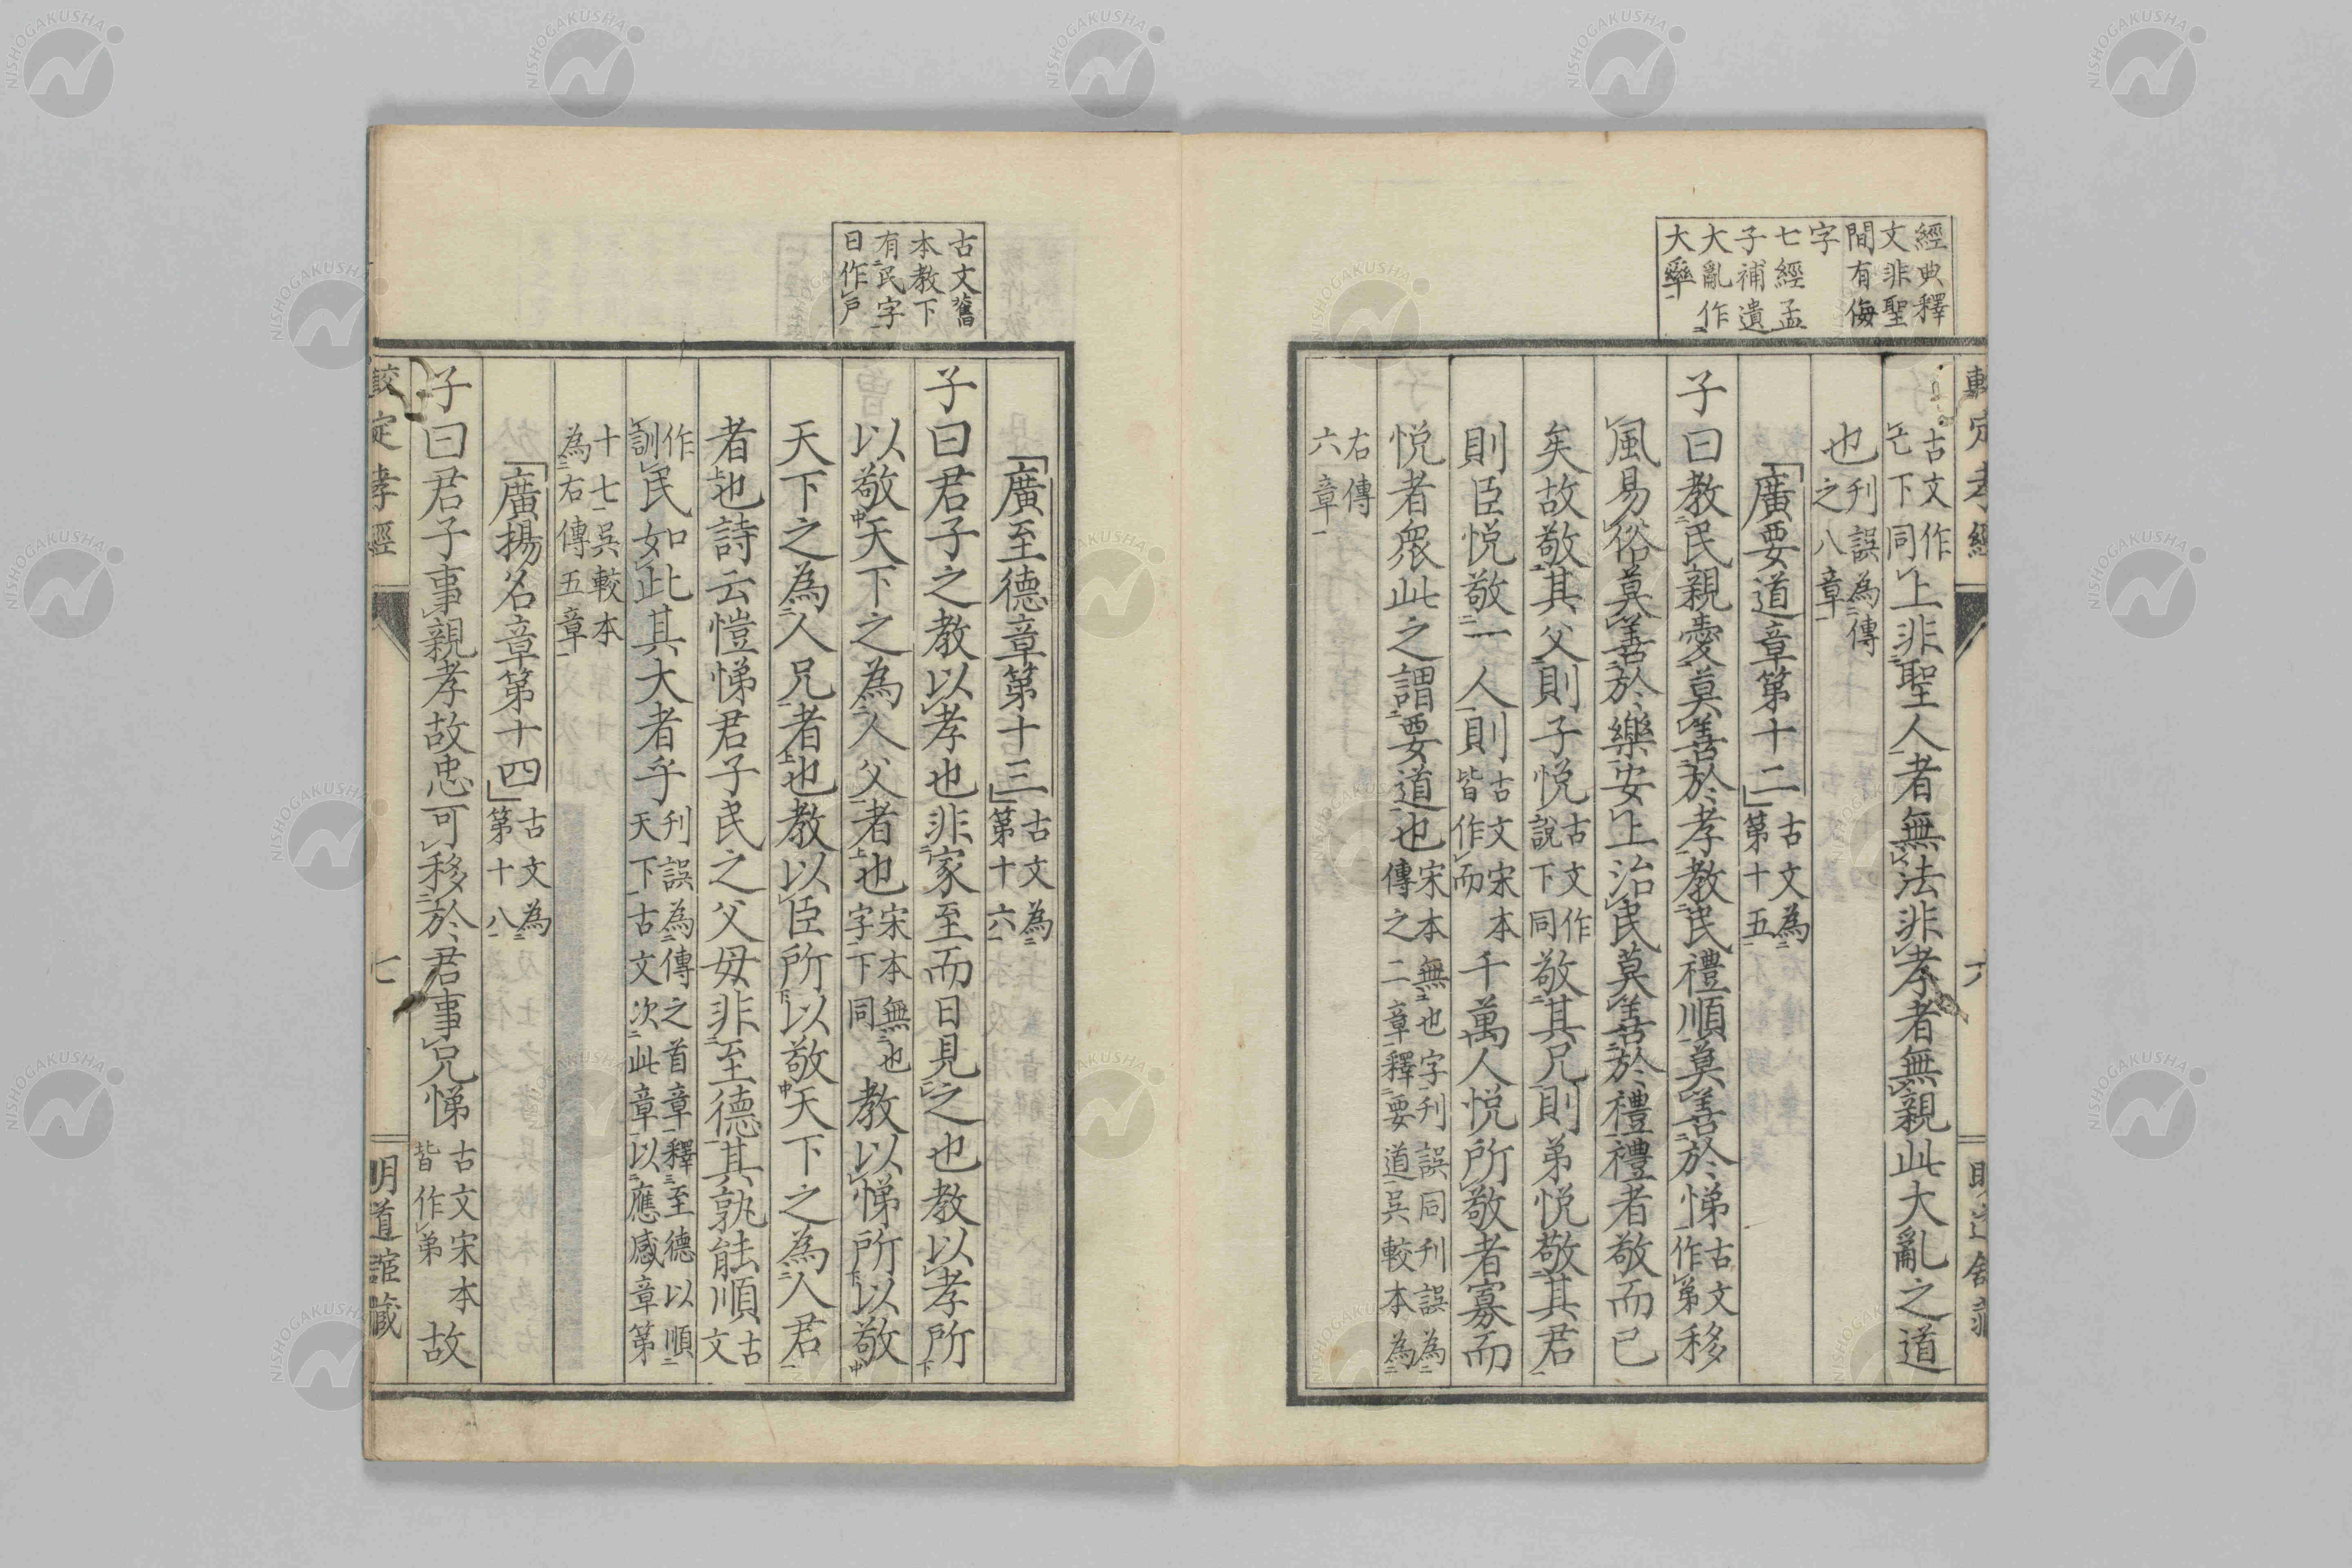 經典釋
文非聖
間有侮
字
七經孟
子補遺
大亂作
大𤔔
古文作
亡下同
上非聖人者無法非孝者無親此大亂之道
也
刋誤為傳
之八章
廣要道章第十二
古文為
第十五
子曰教民親愛莫善於孝教民禮順莫善於悌
古文
作弟
移
風易俗莫善於樂安上治民莫善於禮禮者敬而已
矣故敬其父則子悦
古文作
說下同
敬其兄則弟悦敬其君
則臣悦敬一人則
古文宋本
皆作而
千萬人悦所敬者寡而
悦者衆此之謂要道也
宋本無也字刋誤同刋誤為
傳之二章釋要道吳較本為
右傳
六章
古文舊
本教下
有民字
日作戶
廣至德章第十三
古文為
第十六
子曰君子之教以孝也非家至而日見之也教以孝所
以敬天下之為人父者也
宋本無也
字下同
教以悌所以敬
天下之為人兄者也教以臣所以敬天下之為人君
者也詩云愷悌君子民之父毋非至德其孰能順
古
文
作
訓
民如此其大者乎
刋誤為傳之首章釋至德以順
天下古文次此章以應感章第
十七吳較本
為右傳五章
廣揚名章第十四
古文為
第十八
子曰君子事親孝故忠可移於君事兄悌
古文宋本
皆作弟
故
較定孝經
七
明道舘藏